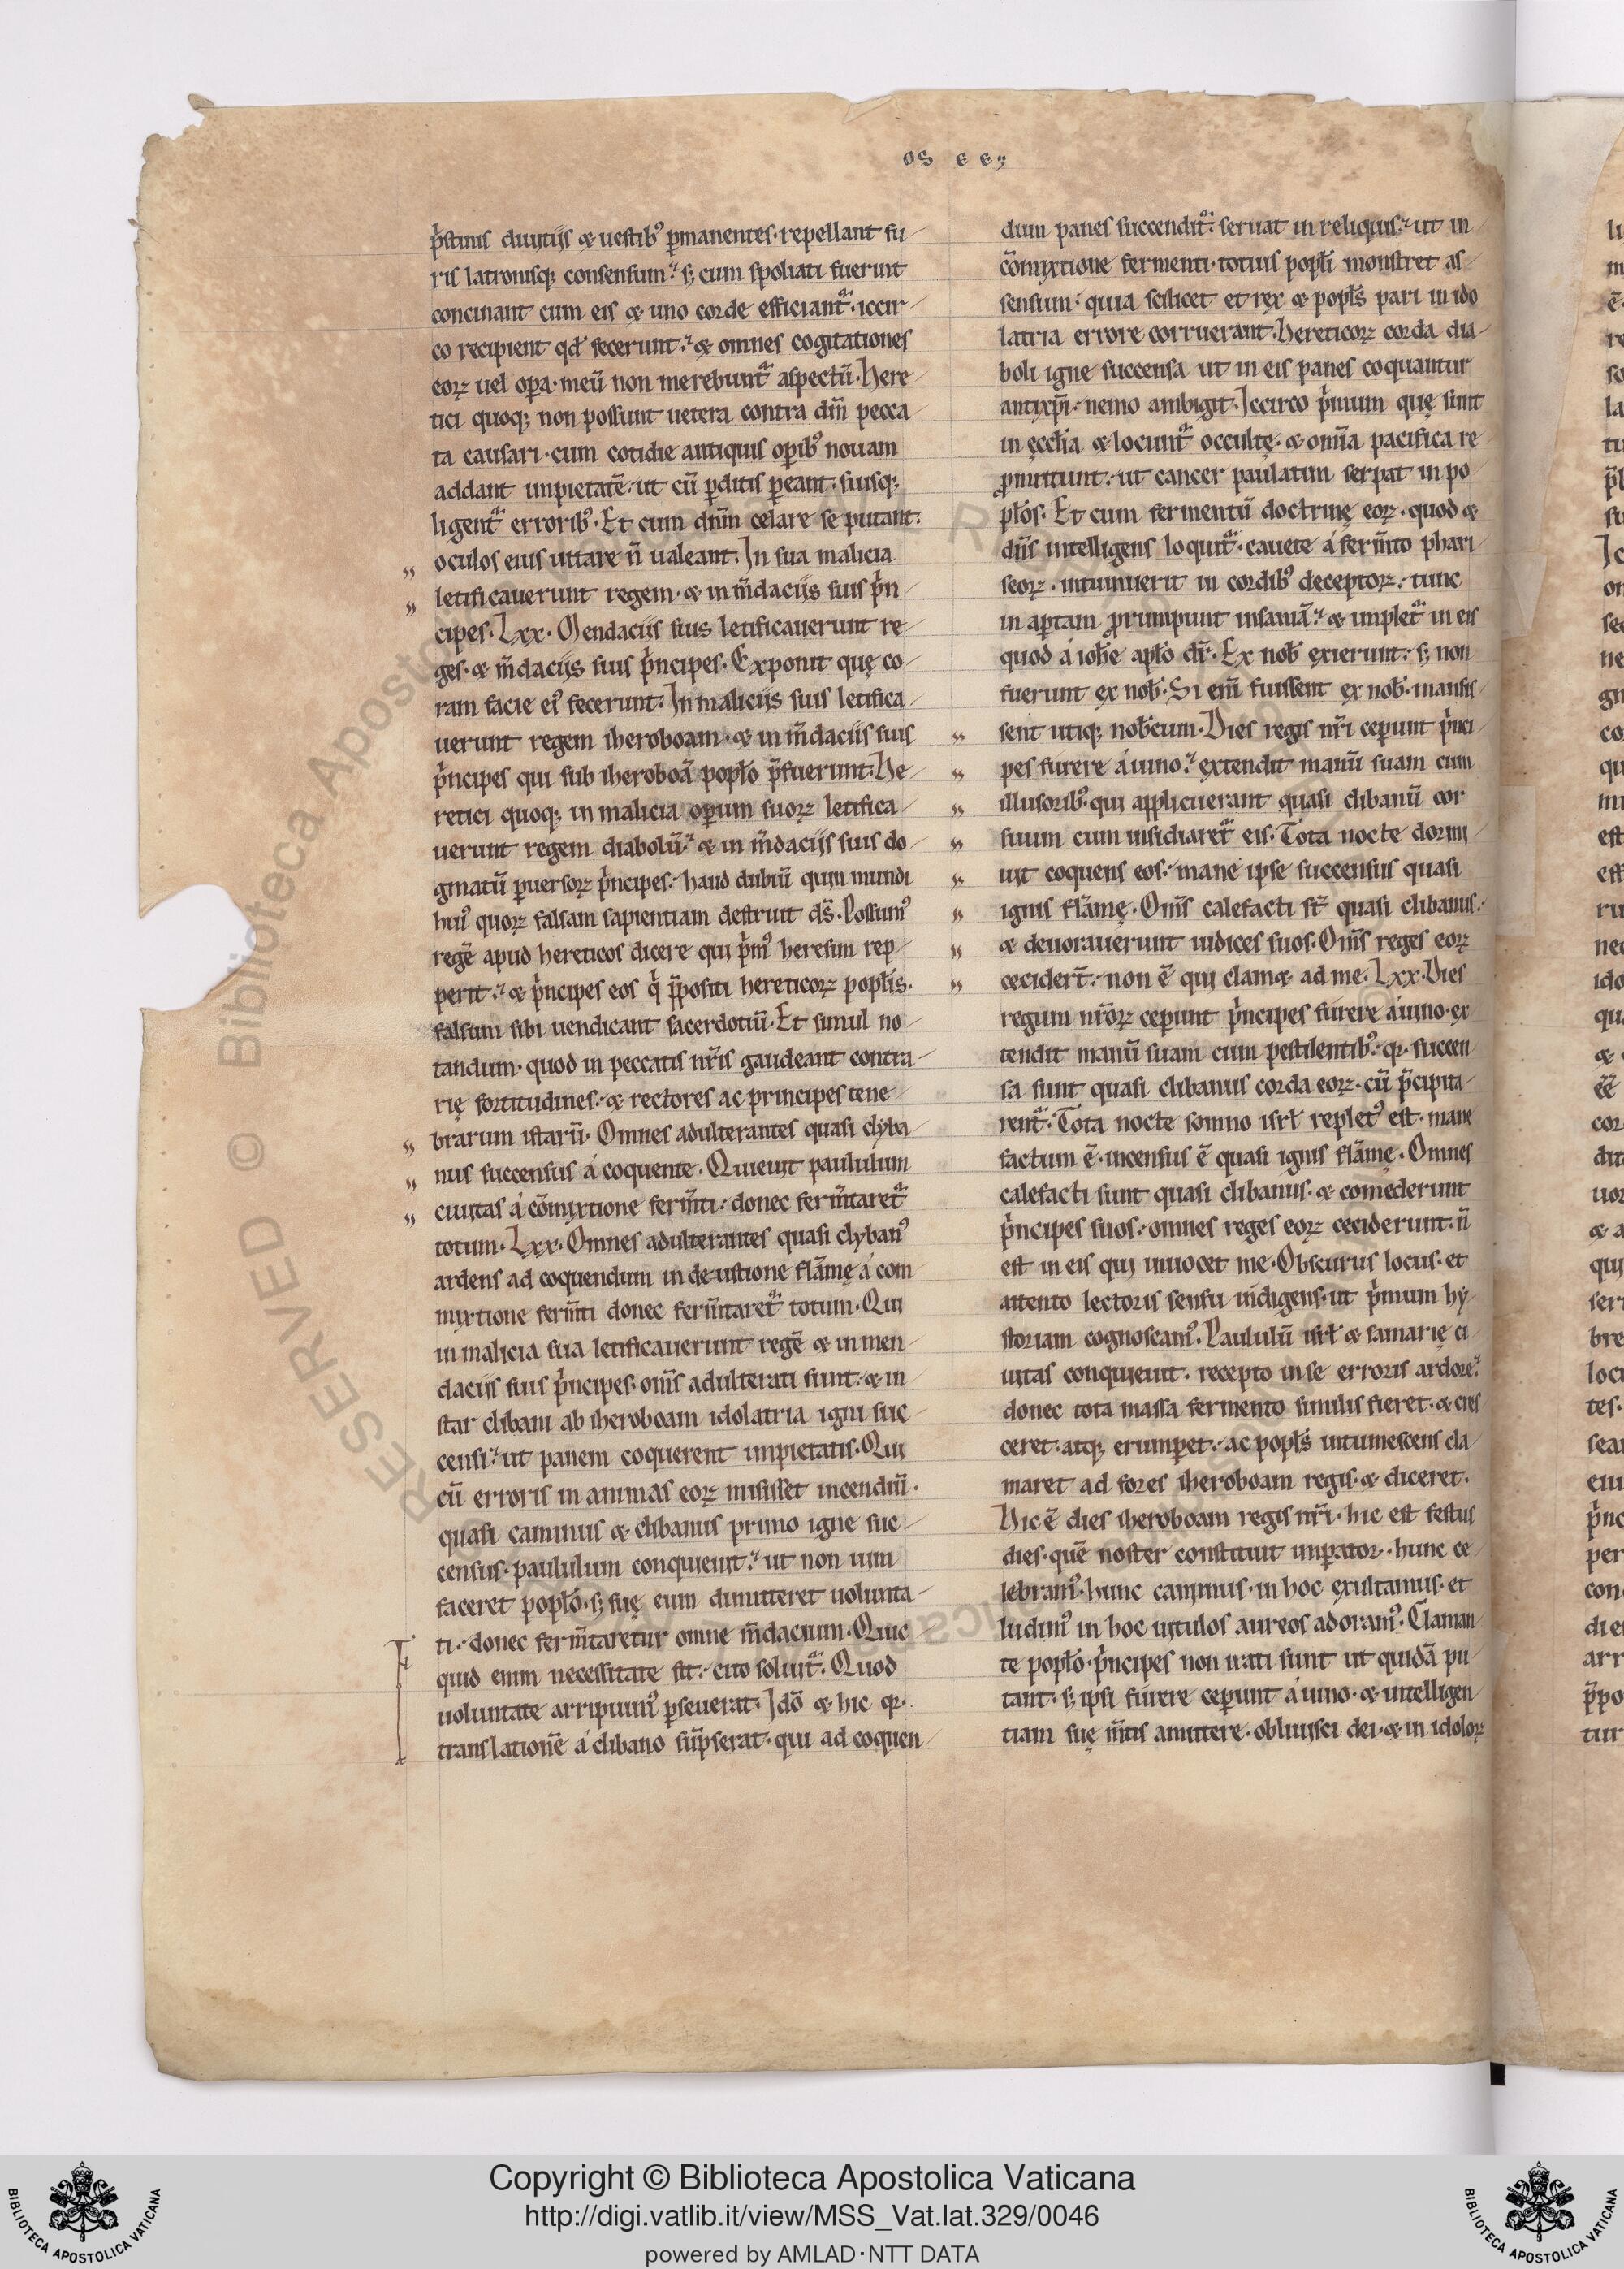 OS EE9
p̾stinis diuitijs & uestibꝰ p̱manentes·repellant fu
ris latronisq; consensum·s; cum spoliati fuerint
concinant cum eis & uno corde efficiant᷑·iccir
co recipient qd̄ fecerunt·& omnes cogitationes
eoꝝ uel oꝑa·meū non merebunt᷑ aspectū·Here
tici quoq; non possunt uetera contra dn̄m pecca
ta causari·cum cotidie antiquis oꝑibꝰ nouam
addant impietatē·ut cū ꝑditis ꝑeant·suisq;
ligent᷑ erroribꝰ·Et cum dn̄m celare se putant·
oculos eius uitare n̄ ualeant·In sua malicia
letificauerunt regem·& in m̄dacijs suis p̾n
cipes·Lxx·Mendaciis suis letificauerunt re
ges·& m̄dacijs suis p̾ncipes·Exponit quę co
ram facie eiꝰ fecerunt·In malicijs suis letifica
uerunt regem iheroboam·& in m̄daciis suis
p̾ncipes qui sub iheroboā popl̄o p̄fuerunt·He
retici quoq; in malicia oꝑum suoꝝ letifica
uerunt regem diabolū·& in m̄dacijs suis do
gmatū ꝑuersoꝝ p̾ncipes·haud dubiū quin mundi
huiꝰ quoꝝ falsam sapientiam destruit ds̄·Possumꝰ
regē apud hereticos dicere qui p̾mꝰ heresim rep
perit·& p̾ncipes eos q̾ p̄positi hereticoꝝ popl̄is·
falsum sibi uendicant sacerdotiū·Et simul no
tandum·quod in peccatis nr̄is gaudeant contra
rię fortitudines·& rectores ac principes tene
brarum istarū·Omnes adulterantes quasi clyba
nus succensus á coquente·Quieuit paululum
ciuitas á cōmixtione ferm̄ti·donec ferm̄taret᷑
totum·Lxx·Omnes adulterantes quasi clybanꝰ
ardens ad coquendum in de ustione flāmę á com
mixtione ferm̄ti donec ferm̄taret᷑ totum·Qui
in malicia sua letificauerunt regē & in men
daciis suis p̾ncipes·om̄s adulterati sunt·& in
star clibani ab iheroboam idolatria igni suc
censi·ut panem coquerent impietatis·Qui
cū erroris in animas eoꝝ misisset incendiū·
quasi caminus & clibanus primo igne suc
census·paululum conquieuit·ut non uim
faceret popl̄o·s; suę eum dimitteret uolunta
ti·donec ferm̄taretur omne m̄dacium·Quic
quid enim necessitate fit·cito soluit᷑·Quod
uoluntate arripuimꝰ ꝑseuerat·Idō & hic q̱·
translationē á clibano sūpserat·qui ad coquen
dum panes succendit᷑·seruat in reliquis·ut in
cōmixtione fermenti·totius popl̄i monstret as
sensum·quia scilicet et rex & popl̄s pari in ido
latria errore corruerant·Hereticoꝝ corda dia
boli igne succensa ut in eis panes coquantur
antixp̄i·nemo ambigit·Iccirco p̾mum quę sunt
in ęccl̄ia & locunt᷑ occultę·& om̄ia pacifica re
ꝓmittunt·ut cancer paulatim serpat in po
pl̄os·Et cum fermentū doctrinę eoꝝ·quod &
dn̄s intelligens loquit᷑·cauete á ferm̄to phari
seoꝝ·intumuerit in cordibꝰ deceptoꝝ·tunc
in aꝑtam ꝓrumpunt insaniā·& implet᷑ in eis
quod á ioh̄e apl̄o dr̄·Ex nob̄ exierunt·s; non
fuerunt ex nob̄·Si em̄ fuissent ex nob̄·mansis
sent utiq; nob̄cum·Dies regis nr̄i ceꝑunt p̾nci
pes furere á uino·extendit manū suam cum
illusoribꝰ·qui applicuerant quasi clibanū cor
suum cum insidiaret᷑ eis·Tota nocte dormi
uit coquens eos·mane ipse succensus quasi
ignis flāmę·Om̄s calefacti st̄ quasi clibanus·
& deuorauerunt iudices suos·Om̄s reges eoꝝ
cecider̄t·non ē qui clam& ad me·Lxx·Dies
regum nr̄oꝝ ceꝑunt p̾ncipes furere á uino·ex
tendit manū suam cum pestilentibꝰ·q̱·succen
sa sunt quasi clibanus corda eoꝝ·cū p̄cipita
rent᷑·Tota nocte somno isrl̄ repletꝰ est·mane
factum ē·incensus ē quasi ignis flāmę·Omnes
calefacti sunt quasi clibanus·& comederunt
p̾ncipes suos·omnes reges eoꝝ ceciderunt·n̄
est in eis qui inuocet me·Obscurus locus·et
attento lectoris sensu indigens·ut p̾mum hy
storiam cognoscamꝰ·Paululū isrl̄ & samarię ci
uitas conquieuit·recepto in se erroris ardore·
donec tota massa fermento similis fieret·& cres
ceret·atq; erumꝑet·ac popl̄s intumescens cla
maret ad fores iheroboam regis·& diceret·
Hic ē dies iheroboam regis nr̄i·hic est festus
dies·quē noster constituit imꝑator·hunc ce
lebramꝰ·hunc canimus·in hoc exultamus·et
ludimꝰ in hoc uitulos aureos adoramꝰ·Claman
te popl̄o·p̾ncipes non irati sunt ut quidā pu
tant·s; ipsi furere ceꝑunt á uino·& intelligen
tiam suę m̄tis amittere·obliuisci dei·& in idoloꝝ
Copyright © Biblioteca Apostolica Vaticana
http://digi.vatlib.it/view/MSS_Vat.lat.329/0046
powered by AMLAD·NTT DATA